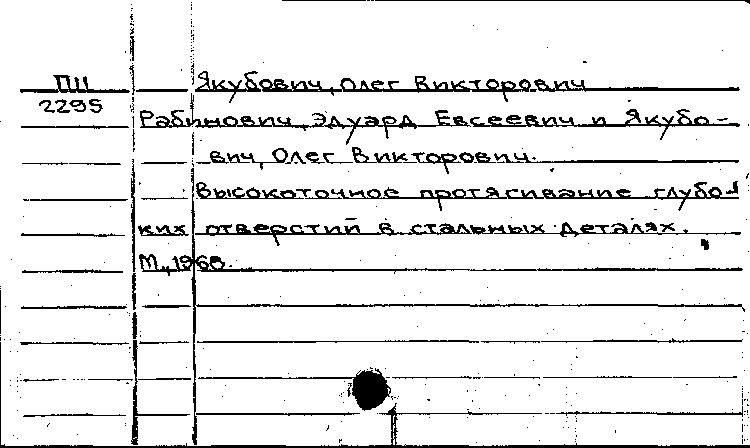 ПЦ Якубович, Олег Викторович
2295 Рабинович, Эдуард Евсеевич и Якубо-
вич, Олег Викторович.
Высокоточное протягивание глубо-
ких отверстий в стальных деталях.
М., 1968.